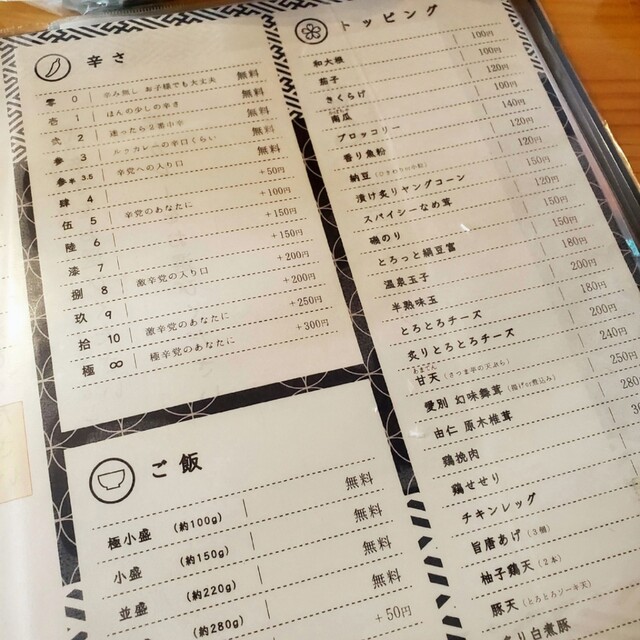 辛さ
零 0 辛み無し お子様でも大丈夫 無料
壱 1 ほんの少しの辛さ 無料
弐 2 迷ったら2番小辛 無料
参 3 ルゥカレーの辛口くらい 無料
参半 3.5 辛党への入り口 無料
肆 4 +50円
伍 5 辛党のあなたに +100円
陸 6 +150円
漆 7 +150円
捌 8 激辛党の入り口 +200円
玖 9 +200円
拾 10 激辛党のあなたに +250円
極 ∞ 極辛党のあなたに +300円
ご飯
極小盛 (約100g) 無料
小盛 (約150g) 無料
並盛 (約220g) 無料
(約280g) 無料
+50円
トッピング
和大根 100円
茄子 100円
きくらげ 120円
南瓜 100円
ブロッコリー 140円
香り魚粉 120円
納豆 120円
漬け炙りヤングコーン 150円
スパイシーなめ茸 120円
磯のり 150円
とろっと絹豆富 150円
温泉玉子 180円
半熟味玉 200円
とろとろチーズ 180円
炙りとろとろチーズ 200円
甘天 (さつま芋の天ぷら) 240円
愛別 幻味舞茸 (揚げor煮込み) 250円
由仁 原木椎茸 280
鶏挽肉
鶏せせり
チキンレッグ
旨唐あげ (3個)
柚子鶏天 (2本)
豚天 (とろとろソーキ天)
り白煮豚